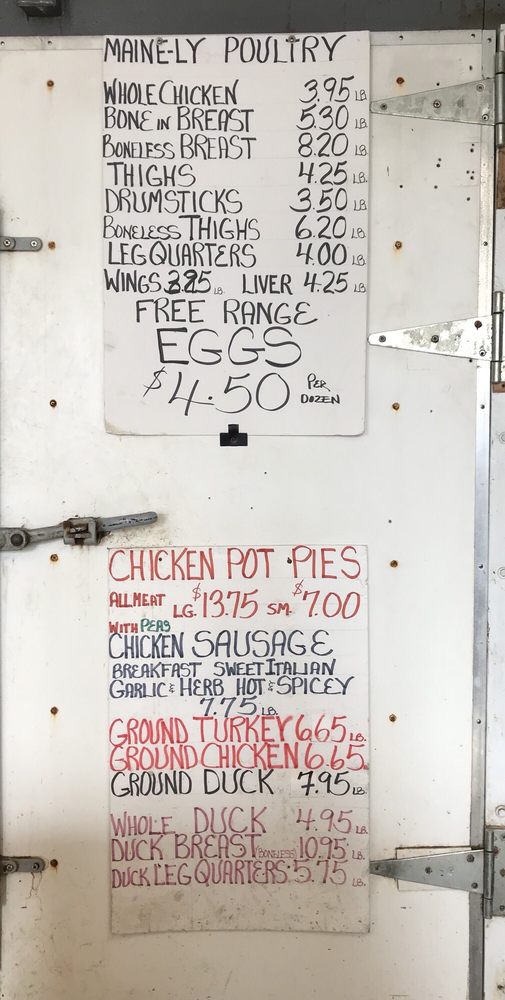 MAINE-LY POULTRY
WHOLE CHICKEN 3.95 LB.
BONE IN BREAST 5.30 LB.
BONELESS BREAST 8.20 LB.
THIGHS 4.25 LB.
DRUMSTICKS 3.50 LB.
BONELESS THIGHS 6.20 LB.
LEG QUARTERS 4.00 LB.
WINGS LB. LIVER 4.25 LB.
FREE RANGE
EGGS
$4.50 PER DOZEN
CHICKEN POT PIES
ALL MEAT LG. $13.75 SM. $7.00
WITH PEAS
CHICKEN SAUSAGE
BREAKFAST SWEET ITALIAN
GARLIC & HERB HOT & SPICEY
7.75 LB.
GROUND TURKEY 6.65 LB.
GROUND CHICKEN 6.65 LB.
GROUND DUCK 7.95 LB.
WHOLE DUCK 4.95 LB.
DUCK BREAST BONELESS 10.95 LB.
DUCK LEG QUARTERS 5.75 LB.